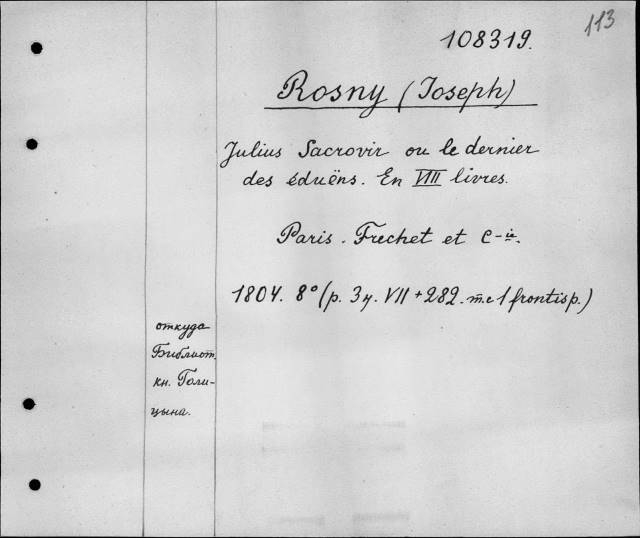 113
108319.
Rosny (Joseph)
Julius Sacrovir ou le dernier
des éduëns. En VIII livres.
Paris. Frechet et C-ie.
1804. 8° (p. 3 y. VII + 282. m.c 1 frontisp.)
откуда
Библиот.
кн. Голи-
цына.